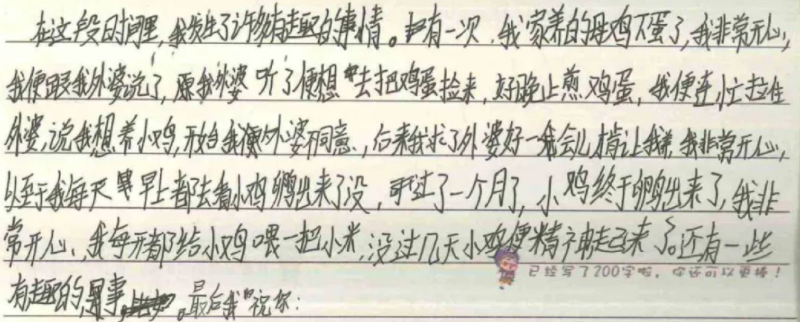 在这段时间里，我发生了许多有趣的事情。有一次，我家养的母鸡下蛋了，我非常开心，
我便跟我外婆说了，我外婆听了便想去把鸡蛋捡来，好晚上煎鸡蛋，我便连忙拉住
外婆，说我想养小鸡，开始我外婆不同意，后来我求了外婆好一会儿肯让我养，我非常开心，
以至于我每天早上都去看小鸡孵出来了没，过了一个月了，小鸡终于孵出来了，我非
常开心、我每天都给小鸡喂一把小米，没过几天小鸡便精神起来了。还有一些
已经写了200字啦，你还可以更棒！
有趣的事。最后我祝你：